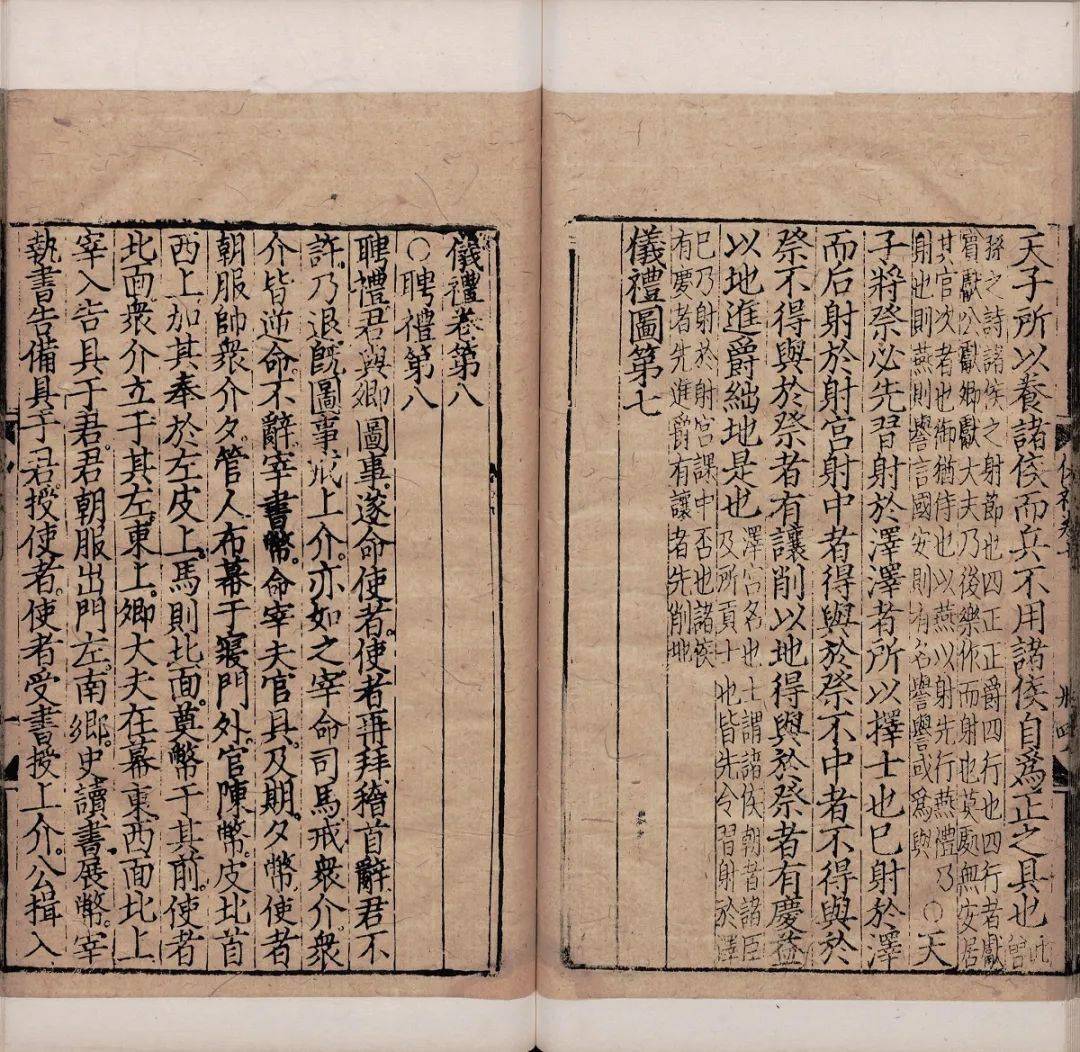 天子所以養諸侯而兵不用諸侯自爲正之具也此
曾
孫之詩諸侯之射節也四正正爵四行也四行者獻
賓獻公獻卿獻大夫乃後樂作而射也莫處無安居
其官次者也御猶侍也以燕以射先行燕禮乃
射也則燕則譽言國安則有名譽譽或爲與
○天
子將祭必先習射於澤澤者所以擇士也已射於澤
而后射於射宮射中者得與於祭不中者不得與於
祭不得與於祭者有讓削以地得與於祭者有慶益
以地進爵絀地是也
澤宮名也士謂諸侯朝者諸臣
及所貢士也皆先令習射於澤
已乃射於射宮課中否也諸侯
有慶者先進爵有讓者先削地
儀禮圖第七
儀禮卷第八
○聘禮第八
聘禮君與卿圖事。遂命使者。使者再拜稽首辭君不
許。乃退。既圖事。戒上介。亦如之宰命司馬戒衆介。衆
介皆逆命。不辭。宰書幣。命宰夫官具。及期。夕幣。使者
朝服帥衆介夕。管人布幕于寢門外。官陳幣。皮北首
西上加其奉於左皮上。馬則北面。奠幣于其前。使者
北面衆介立于其左。東上。卿大夫在幕東。西面北上
宰入告具于君。君朝服出門左。南鄉。史讀書。展幣。宰
執書告備具于君。授使者。使者受書授上介。公揖入